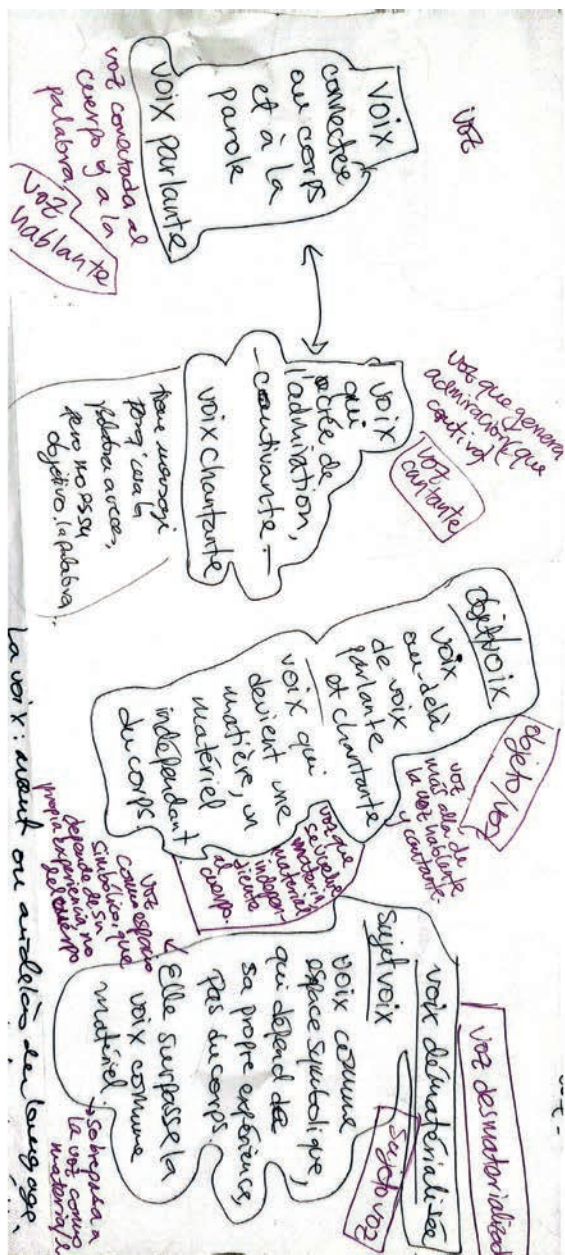 voz
voix
connectée
au corps
et à la
parole
voix parlante
voz conectada al
cuerpo y a la
palabra
voz
hablante
voz que genera
admiración (que
cautiva)
voz
cantante
voix
qui
crée de
l'admiration,
- captivante -
voix chantante
tiene mensaje
porq' usa la
palabra a veces,
pero no es su
objetivo, la palabra...
objet/voix
voix
au delà
de voix
parlante
et chantante
voix qui
devient une
matière, un
matériel
indépendant
du corps.
objeto/voz
voz
más allá de
la voz hablante
y cantante.
voz que
se vuelve
materia,
material
indepen-
diente
al cuerpo.
voz desmaterializada
voix démartérialisée
sujet voix
sujeto voz
voix comme
espace symbolique,
qui dépend de
sa propre expérience,
pas du corps.
Elle surpasse la
voix comme
matériel.
voz
como espacio
simbólico, que
depende de su
propia experiencia, no
del cuerpo
→ sobrepasa a
la voz como
material
La voix: avant ou au delà du langage...